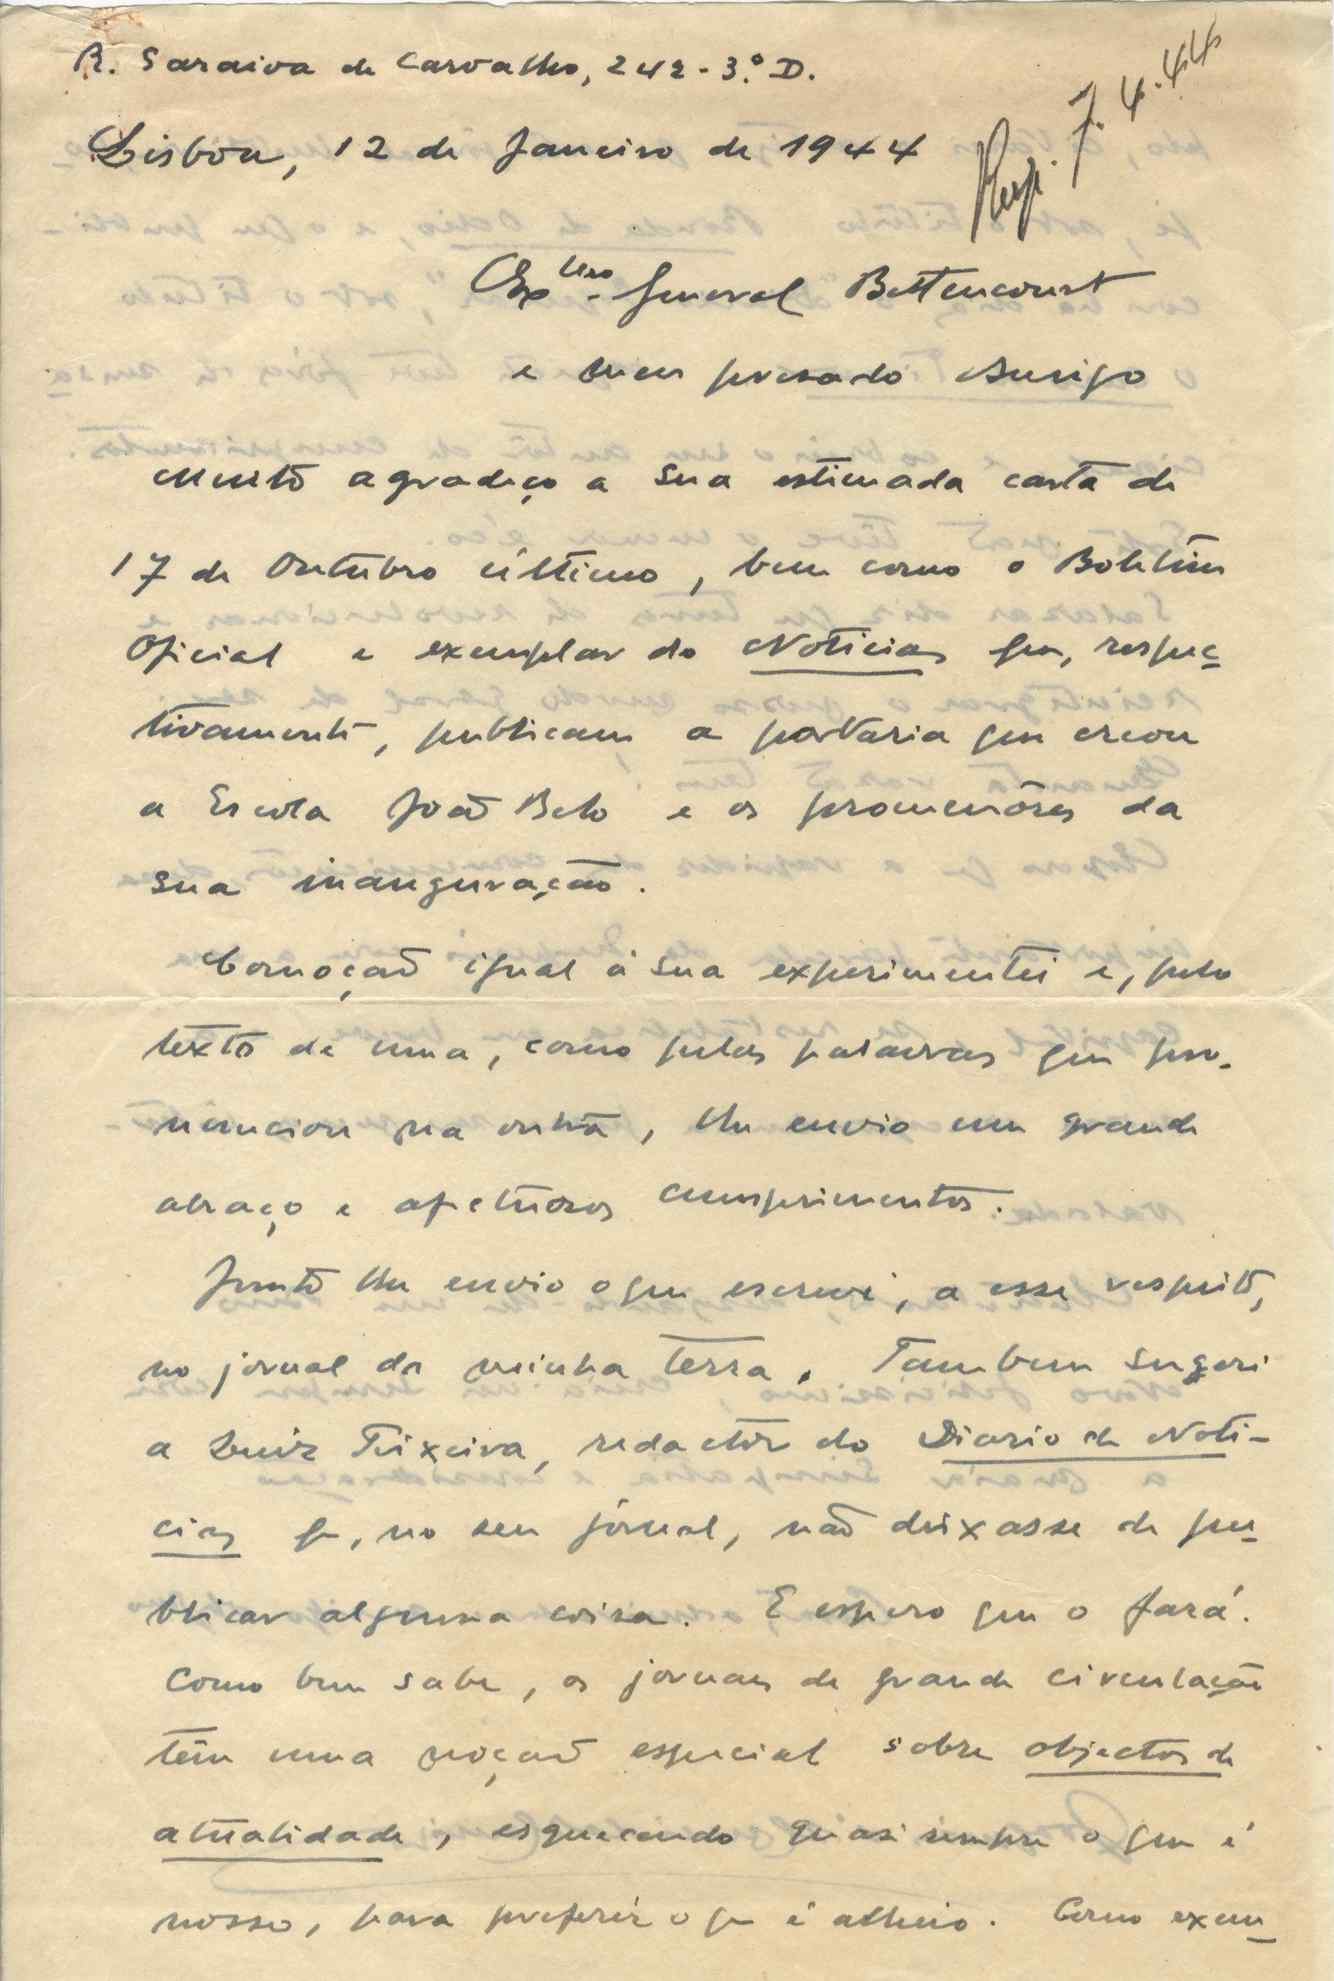 R. Saraiva de Carvalho, 242-3.º D.
Lisboa, 12 de Janeiro de 1944
Resp. 7.4.44
Exmo. General Bettencourt
e meu presado Amigo
Muito agradeço a sua estimada carta de
17 de Outubro último, bem como o Boletim
Oficial e exemplar do Noticias que, respec-
tivamente, publicam a portaria que creou
a Escola João Belo e os promenôres da
sua inauguração.
Comoção igual á sua experimentei e, pelo
texto de uma, como pelas palavras que pro-
nunciou na outra, lhe envio um grande
abraço e afetuosos cumprimentos.
Junto lhe envio o que escrevi, a esse respeito,
no jornal da minha terra. Tambem sugeri
a Luiz Teixeira, redactôr do Diario de Noti-
cias que, no seu jornal, não deixasse de pu-
blicar alguma coisa. E espero que o fará.
Como bem sabe, os jornaes de grande circulação
têm uma noção especial sobre objectos de
atualidade, esquecendo quási sempre o que é
nosso, para preferir o que é alheio. Como exem-